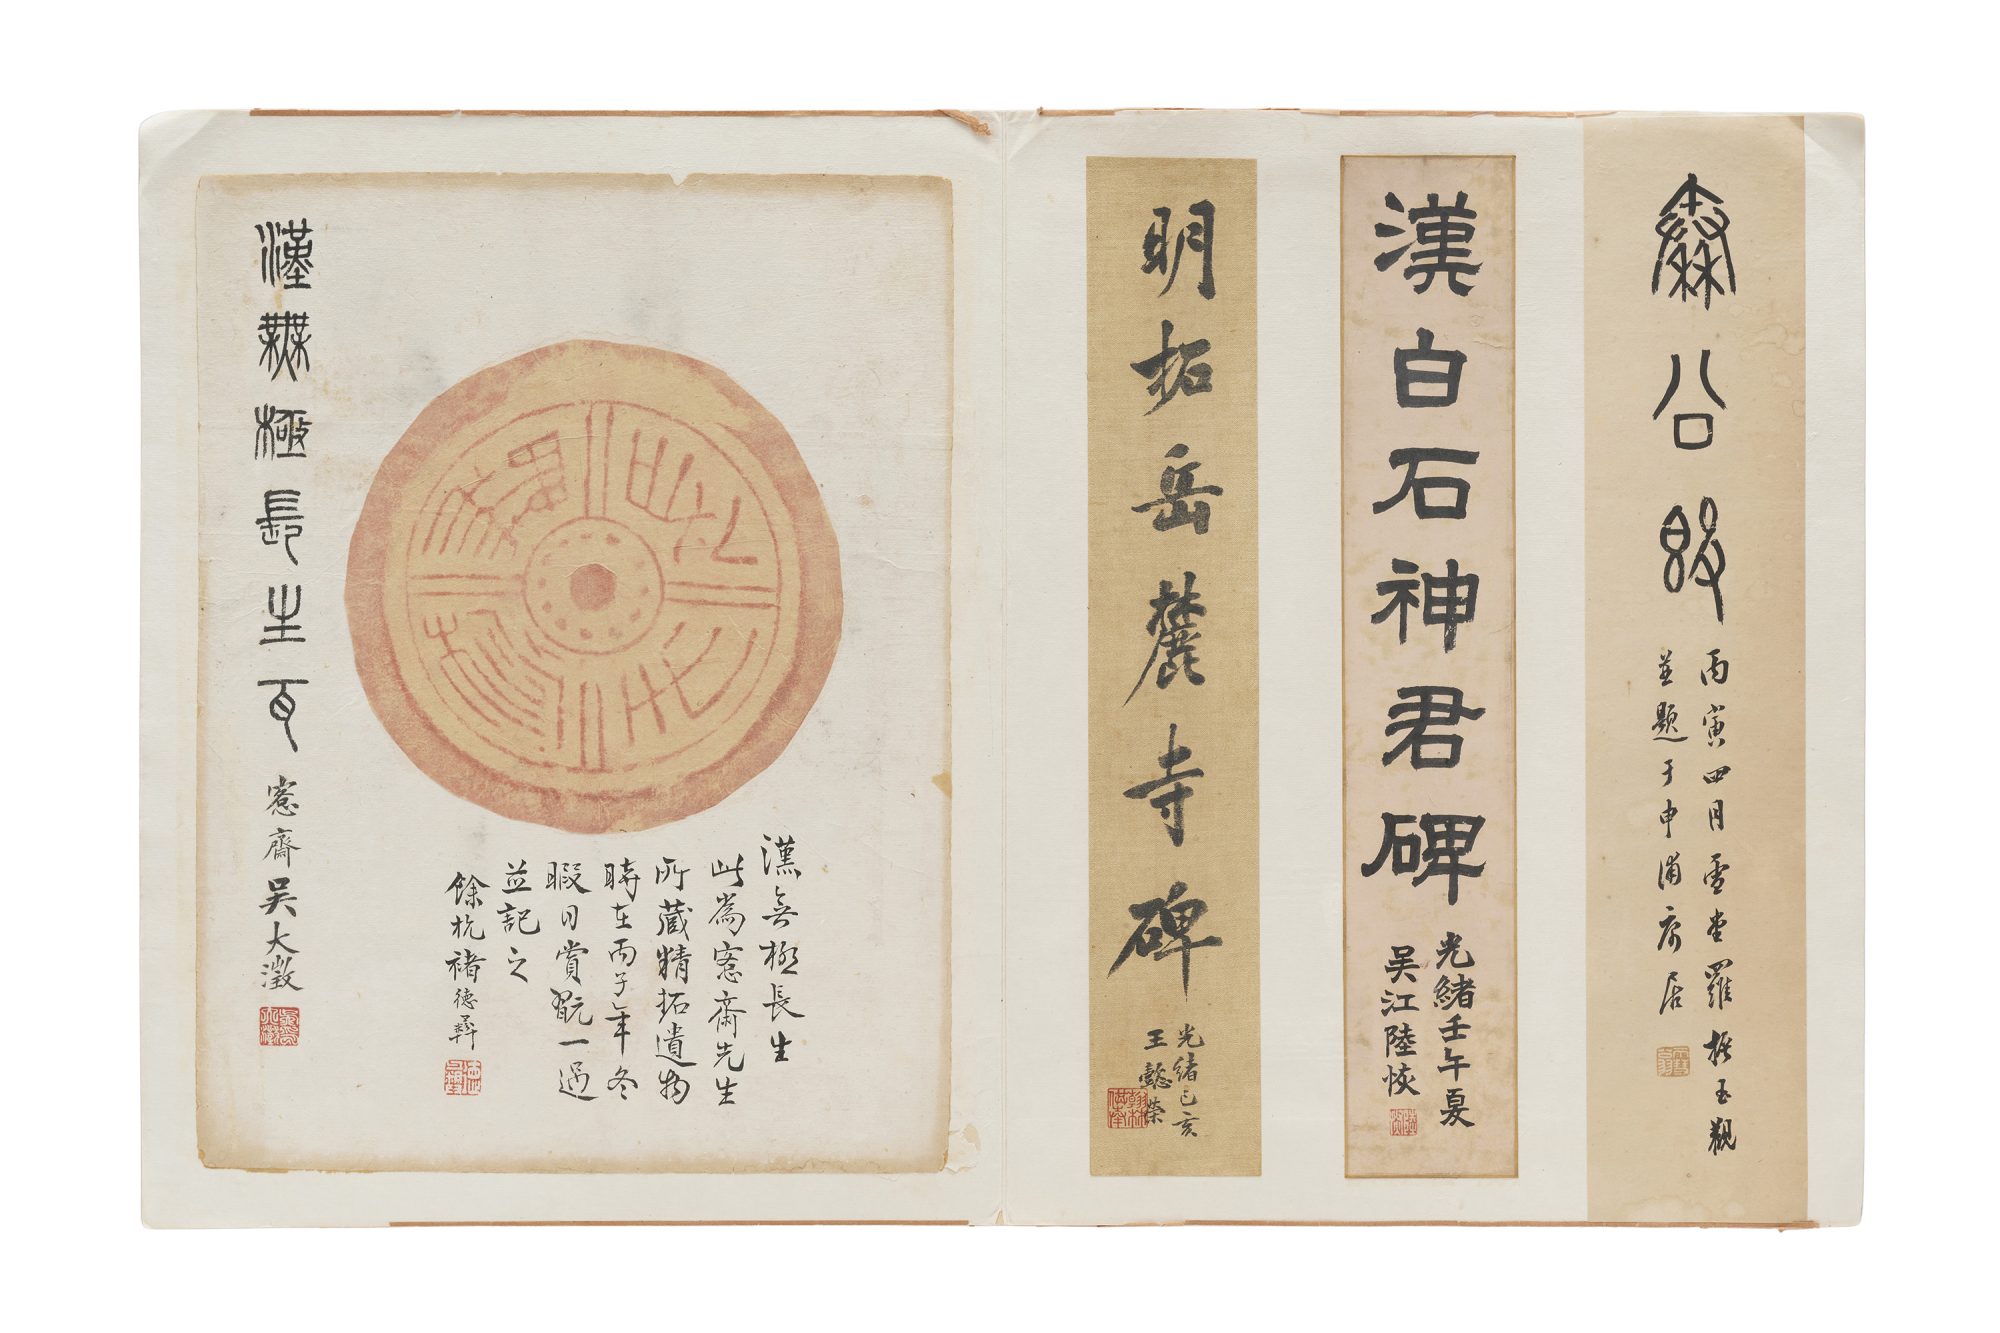 秦公𣪘
丙寅四月雪堂羅振玉觀
並題于申浦寓居
漢白石神君碑
光緒壬午夏
吳江陸恢
明拓岳麓寺碑
光緒己亥
王懿榮
翰林供奉
漢無極長生
此為愙齋先生
所藏精拓遺物
時在丙子年冬
暇日賞翫一過
並記之
餘杭褚德彝
漢無極長生瓦
愙齋吳大澂